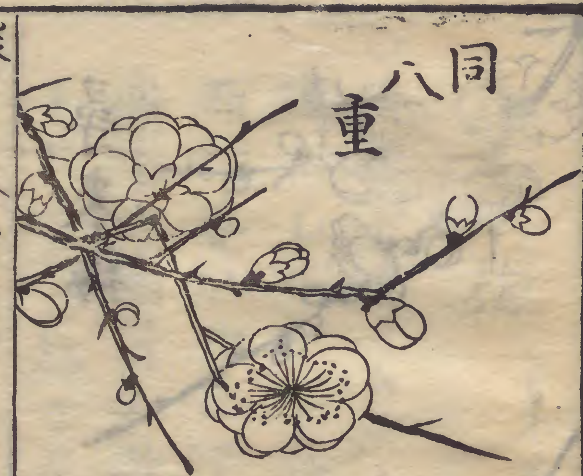 同八重